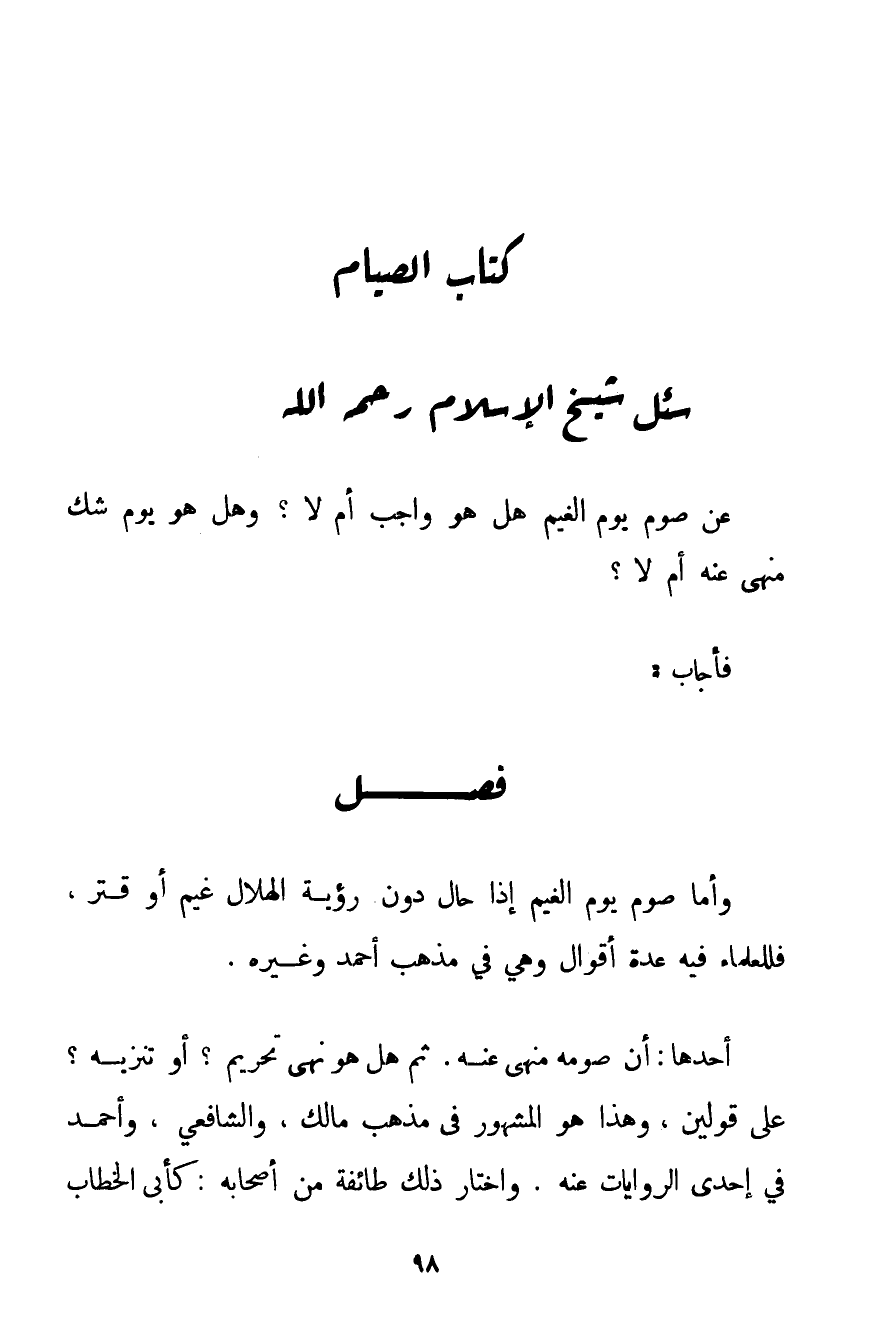 كتاب الصيام
سئل شيخ الإسلام رحمه الله
عن صوم يوم الغيم هل هو واجب أم لا ؟ وهل هو يوم شك
منهى عنه أم لا ؟
فأجاب :
فصــــــل
وأما صوم يوم الغيم إذا حال دون رؤيــة الهلال غيم أو قــتر ،
فللعلماء فيه عدة أقوال وهي في مذهب أحمد وغــيره .
أحدها : أن صومه منهى عنــه . ثم هل هو نهى تحريم ؟ أو تنزيــه ؟
على قولين ، وهذا هو المشهور فى مذهب مالك ، والشافعي ، وأحمــد
في إحدى الروايات عنه . واختار ذلك طائفة من أصحابه : كأبى الخطاب
٩٨